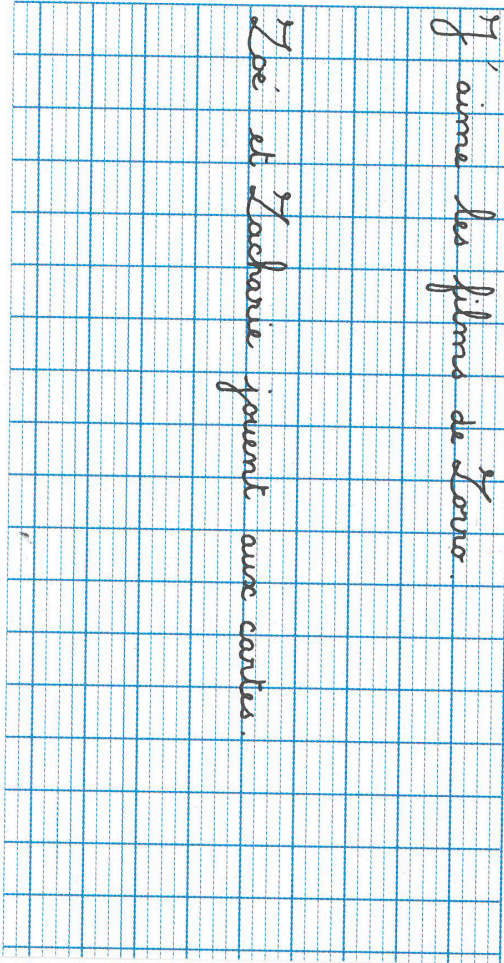 J'aime les films de Zorro.
Zoé et Zacharie jouent aux cartes.